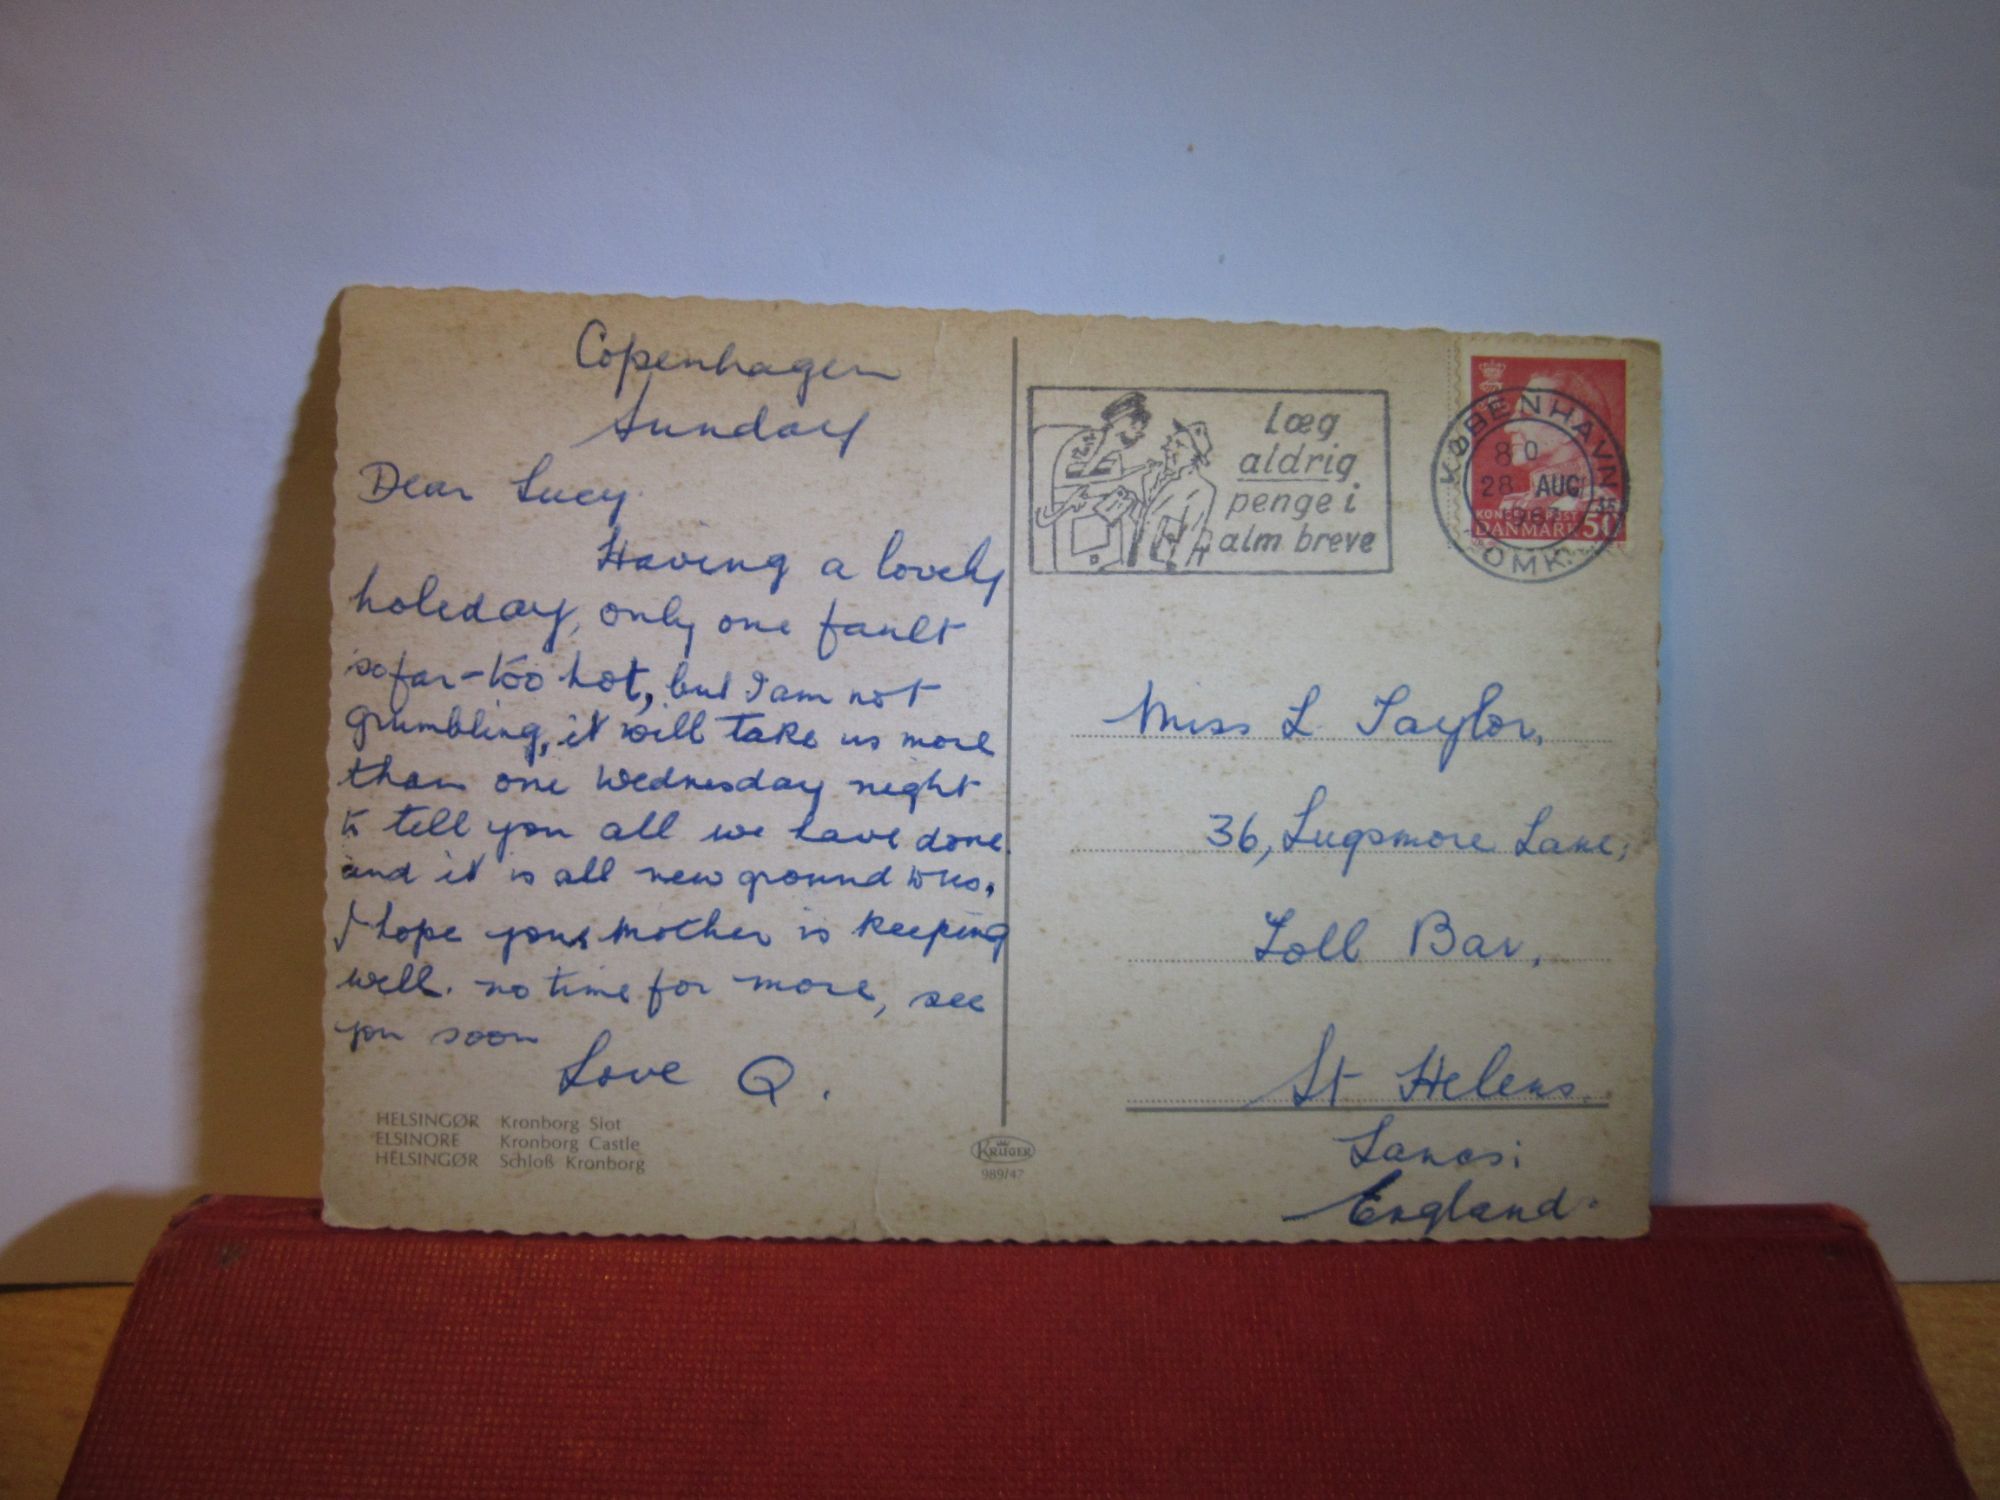 Copenhagen
Sunday
Dear Lucy.
Having a lovely
holiday, only one fault
so far - too hot, but I am not
grumbling, it will take us more
than one Wednesday night
to tell you all we have done.
and it is all new ground too.
I hope your mother is keeping
well. no time for more, see
you soon
Love Q.
HELSINGØR Kronborg Slot
ELSINORE Kronborg Castle
HELSINGØR Schloß Kronborg
KRÜGER
989/47
læg
aldrig
penge i
alm breve
KØBENHAVN
80
28 AUG
OMK.
DANMARK 50
Miss L Taylor,
36, Lugsmore Lane,
Toll Bar,
St Helens.
Lancs:
England.